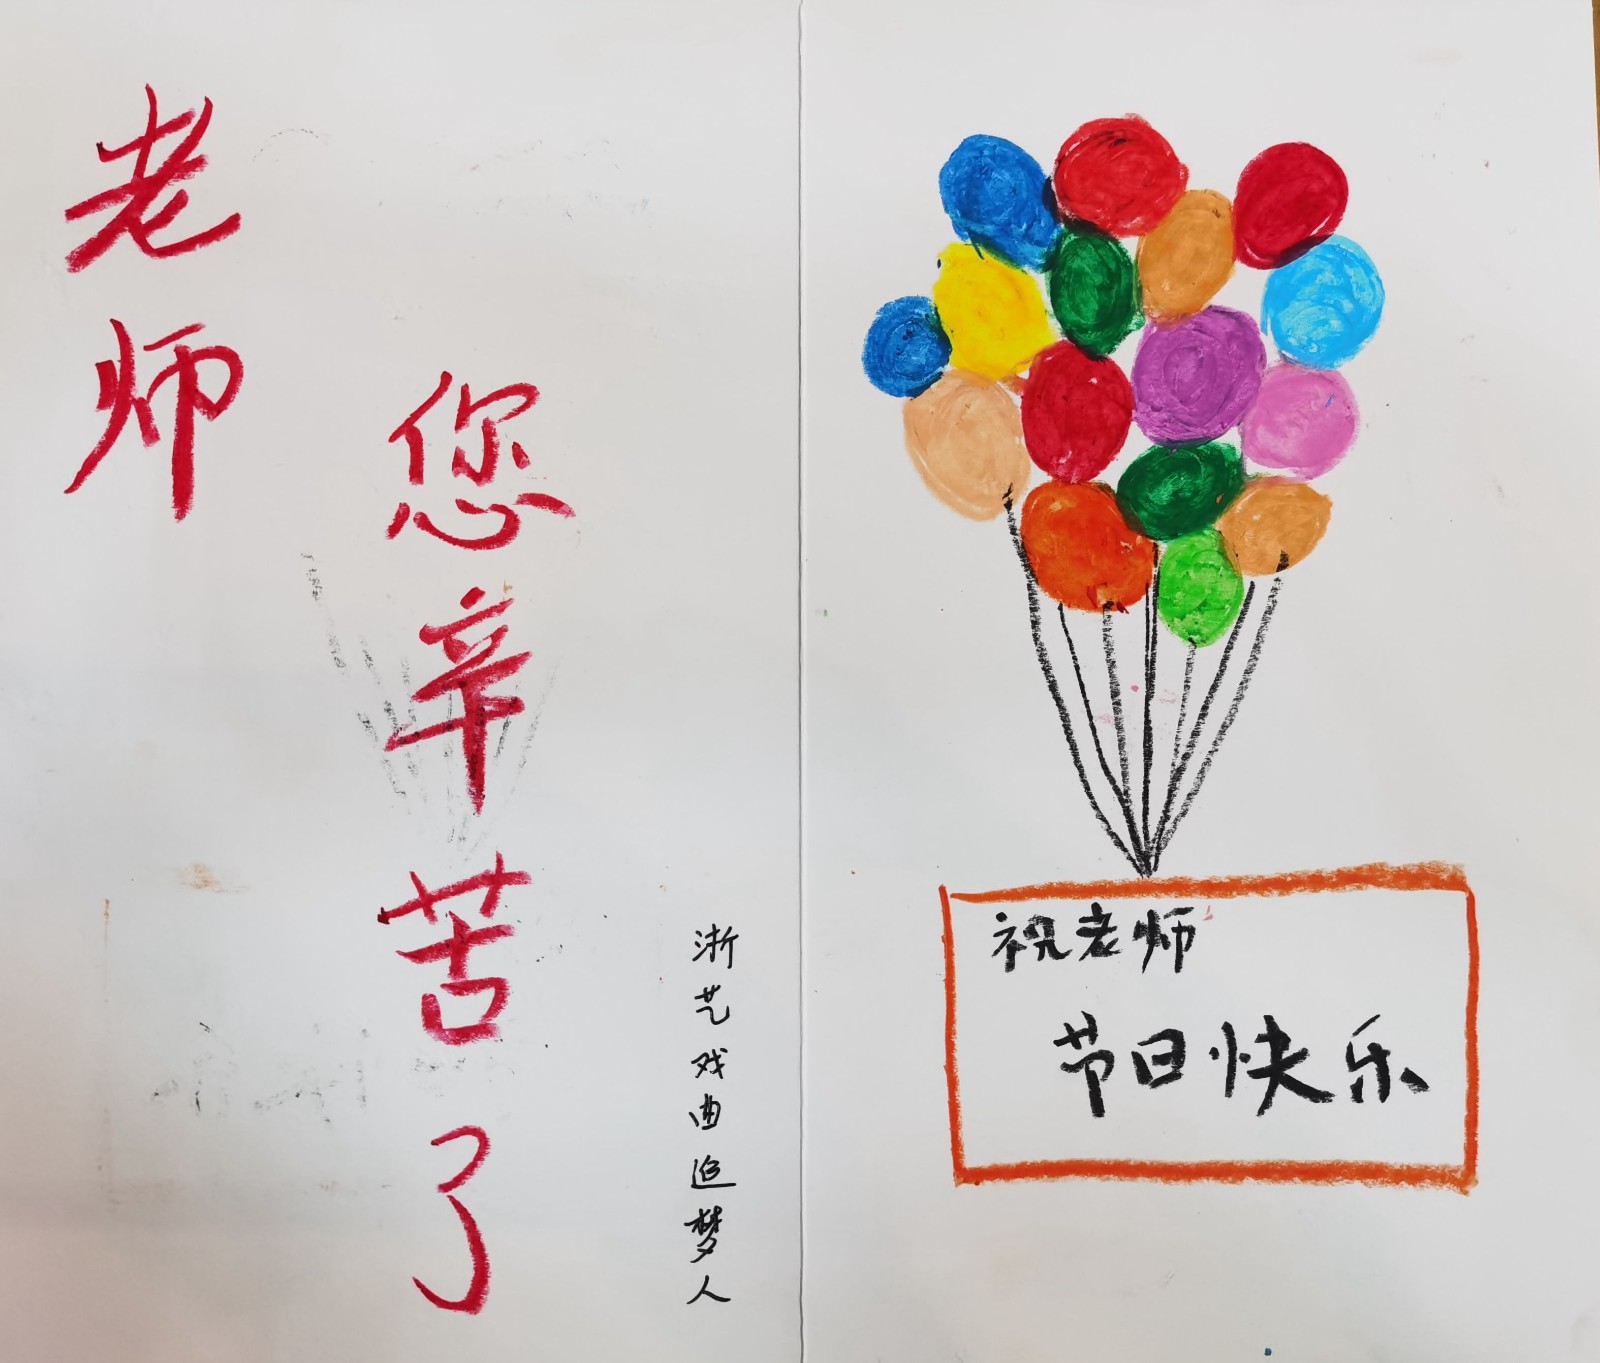 老师
您辛苦了
浙艺戏曲追梦人
祝老师
节日快乐